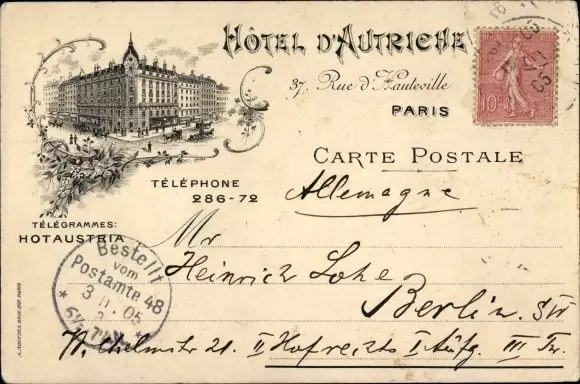 HÔTEL D'AUTRICHE
37, Rue d'Hauteville
PARIS
CARTE POSTALE
TÉLÉPHONE
286-72
TÉLÉGRAMMES:
HOTAUSTRIA
10c
Allemagne
Mr
Heinrich Lohe
Berlin. SW
21. II Hofrechts I Aufg. III Tr.
Bestellt
vom
Postamte 48
3 11. 05